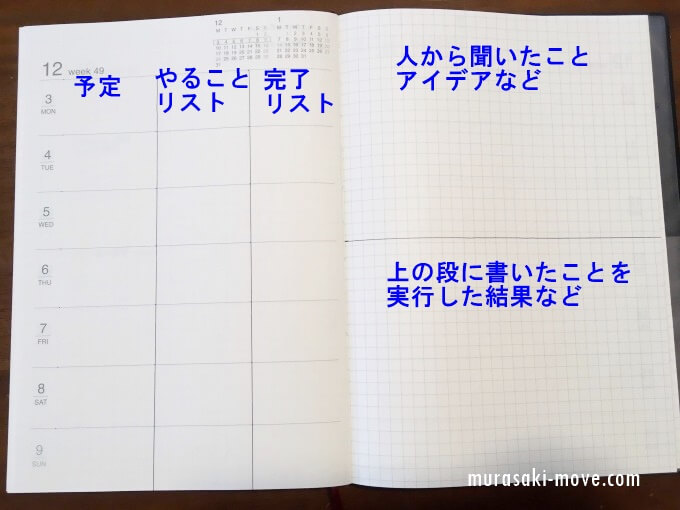 12 1
M T W T F S S M T W T F S S
12 week 49
予定
やること
リスト
完了
リスト
3
MON
4
TUE
5
WED
6
THU
7
FRI
8
SAT
9
SUN
人から聞いたこと
アイデアなど
上の段に書いたことを
実行した結果など
murasaki-move.com